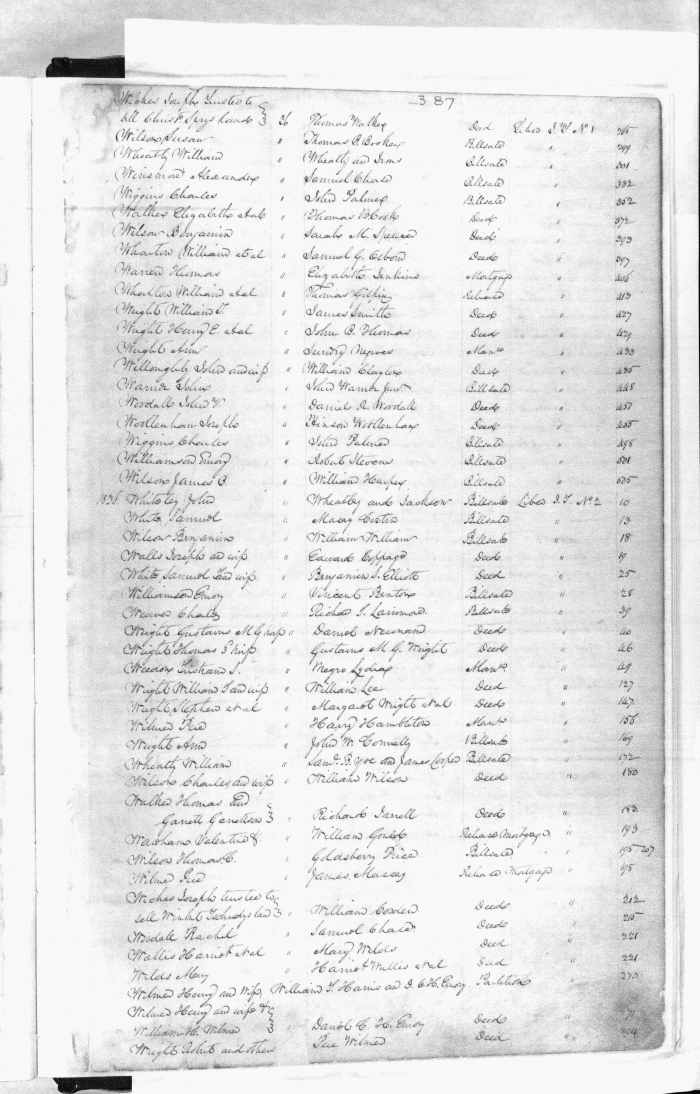 387
Wickes Joseph Trustee to
sell Land } to Thomas Walker Deed Liber J.T. No 1
Wilson Susan " Thomas B. Booker Billsale " 299
Wheatly William " Wheatly and Irons Billsale " 301
Alexander " Samuel Billsale " 332
Wiggins Charles " John Palmer Billsale " 352
Walker Elizabeth et al " Thomas B Cook Deed " 372
Wilson Benjamin " Sarah M. Spencer Deed " 393
Wharton William et al " Samuel G. Osborn Deed " 397
Warren Thomas " Elizabeth Jenkins Mortgage " 406
Wharton William et al " Thomas Gilpin Release " 413
Wright William T. " James Smith Deed " 427
Wright Henry E. et al " John B. Thomas Deed " 429
Wright Ann " Sundry Negroes Manu " 433
Willoughby John and wife " William Clayton Deed " 435
John " John Junr Billsale " 448
Woodall John W. " Daniel R. Woodall Deed " 451
Woollenhan Joseph " Hinson Woollenhan Deed " 455
Wiggins Charles " John Palmer Billsale " 498
Williamson Emory " Robert Stevens Billsale " 501
Wilson James B. " William Harper Billsale " 505
1836. Whiteley John " Wheatley and Jackson Billsale Liber J.T. No 2 10
White Samuel " Billsale " 13
Wilson Benjamin " William William Billsale " 18
Walls Joseph and wife " Edward Coppage Deed " 19
White Samuel T and wife " Benjamin S. Elliott Deed " 25
Williamson Emory " Vincent Benton Billsale " 28
Weaver Charles " Richd T. Larrimore Billsale " 39
Wright Gustavus M G & wife " Daniel Newnam Deed " 40
Wright Thomas & wife " Gustavus M. G. Wright Deed " 46
Weedon Tristram S. " Negro Lydia Manu " 49
Wright William T and wife " William Lee Deed " 127
Wright Stephen et al " Margaret Wright et al Deed " 147
Wilmer Pere " Harry Hambleton Manu " 156
Wright Ann " John W. Connelly Billsale " 169
Wheatly William " Saml. B. Yoe and James Cooper Billsale " 172
Wilson Charles and wife " William Wilson Deed " 180
Walker Thomas and
Garrett Garrettson } " Richard Jarrell Deed " 183
Valentine " William Release Mortgage " 193
Wilson Thomas C. " Goldsbery Price Billsale " 195
Wilmer Pere " James Massey Release Mortgage " 198
Wickes Joseph trustee to
sell land } " William Cosden Deed " 212
Woodall Rachel " Samuel Chase Deed " 215
Wallis Harriot et al " Mary Wilds Deed " 221
Wilds Mary " Harriot Wallis et al Deed " 221
Wilmer Henry and wife, William T. Harris and D. C. H. Emory Partition " 270
Wilmer Henry and wife &
William H. Wilmer } " Daniel C. H. Emory Deed "
Wright John and others Pere Wilmer Deed "